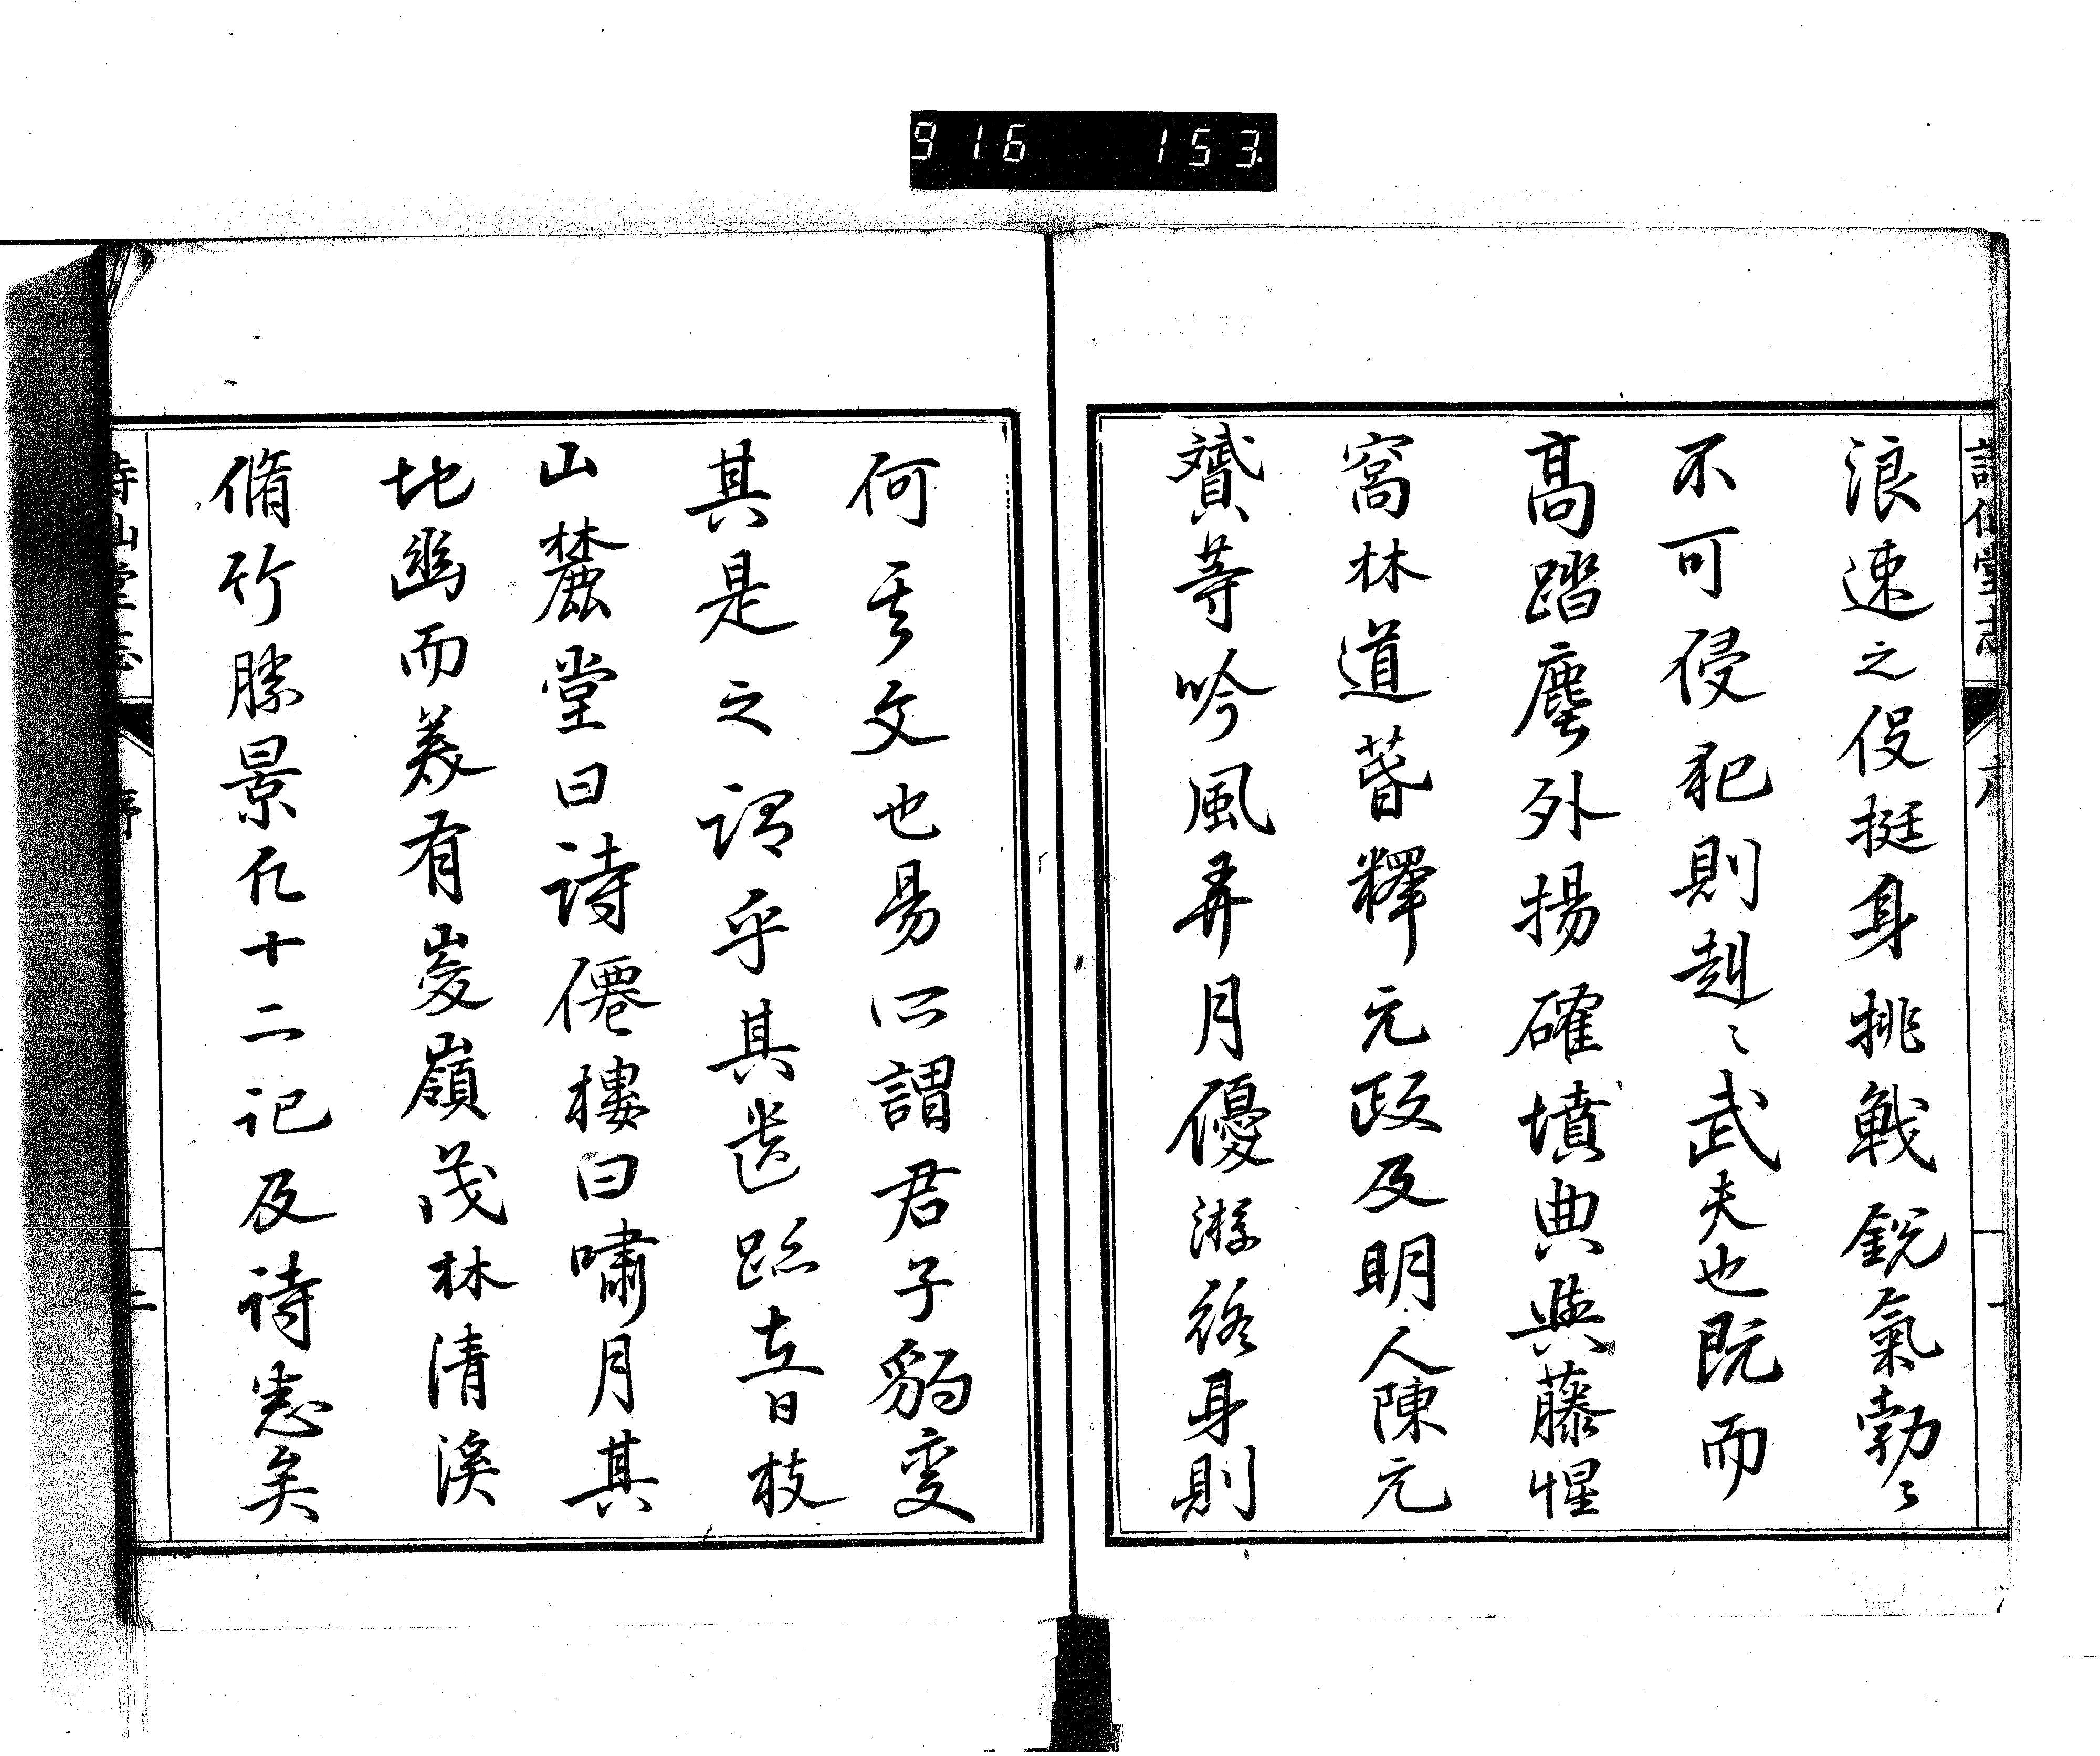 916 153.
詩仙堂志
序
一
浪速之役挺身挑戰銳氣勃〻
不可侵犯則赳〻武夫也既而
高踏塵外揚確墳典與藤惺
窩林道春釋元政及明人陳元
贇等吟風弄月優游終身則
何其文也易所謂君子豹變
其是之謂乎其遺趾在一白枝
山麓堂曰詩僊樓曰嘯月其
地幽而義有峻嶺茂林清溪
脩竹勝景凡十二記及詩悉矣
詩仙堂志
序
二